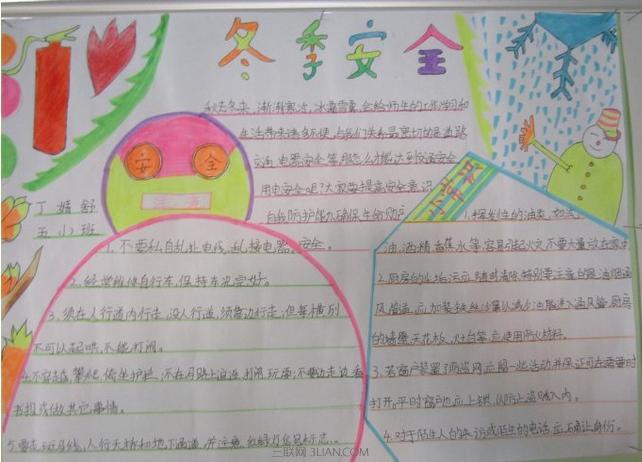 冬季安全
秋去冬来，渐渐寒冷，冰霜雪雾，会给师生的工作学习和
生活带来诸多不便，与我们关系最密切的是道路
交通，电器安全等，那怎么才能达到交通安全
用电安全呢?大家要提高安全意识
自我防护能力，确保生命财产
安全。
安全
注意
丁婧舒
五(2)班
1、不要私自乱扯电线，乱接电器。
2、经常检修自行车，保持车况完好。
3、须在人行道内行走，没人行道，须靠边行走，但每横列
不可以起哄，不能打闹。
4、不穿越、攀爬、倚坐护栏，不在马路上追逐、打闹、玩耍；不要边走边看
书报或做其它事情。
5、要走斑马线，人行天桥和地下通道，并注意红绿灯信号标志。
小常识
1.挥发性的油类，如汽
油、酒精、香蕉水等容易引起火灾，不要大量放在家中
2.厨房的火垢污应随时清除，特别要注意的是油烟通
风管道，应加装铁丝沙罩以减少油脂进入通风管，厨房
的墙壁、天花板、灶台等，应使用防火材料。
3、若窗户装置了防盗网，应留一些活动并保证可在需要时
打开，平时窗户也应上锁，以防止盗贼入内。
4、对于陌生人的来访或陌生的电话应正确让身份。
三联网 3LIAN.COM